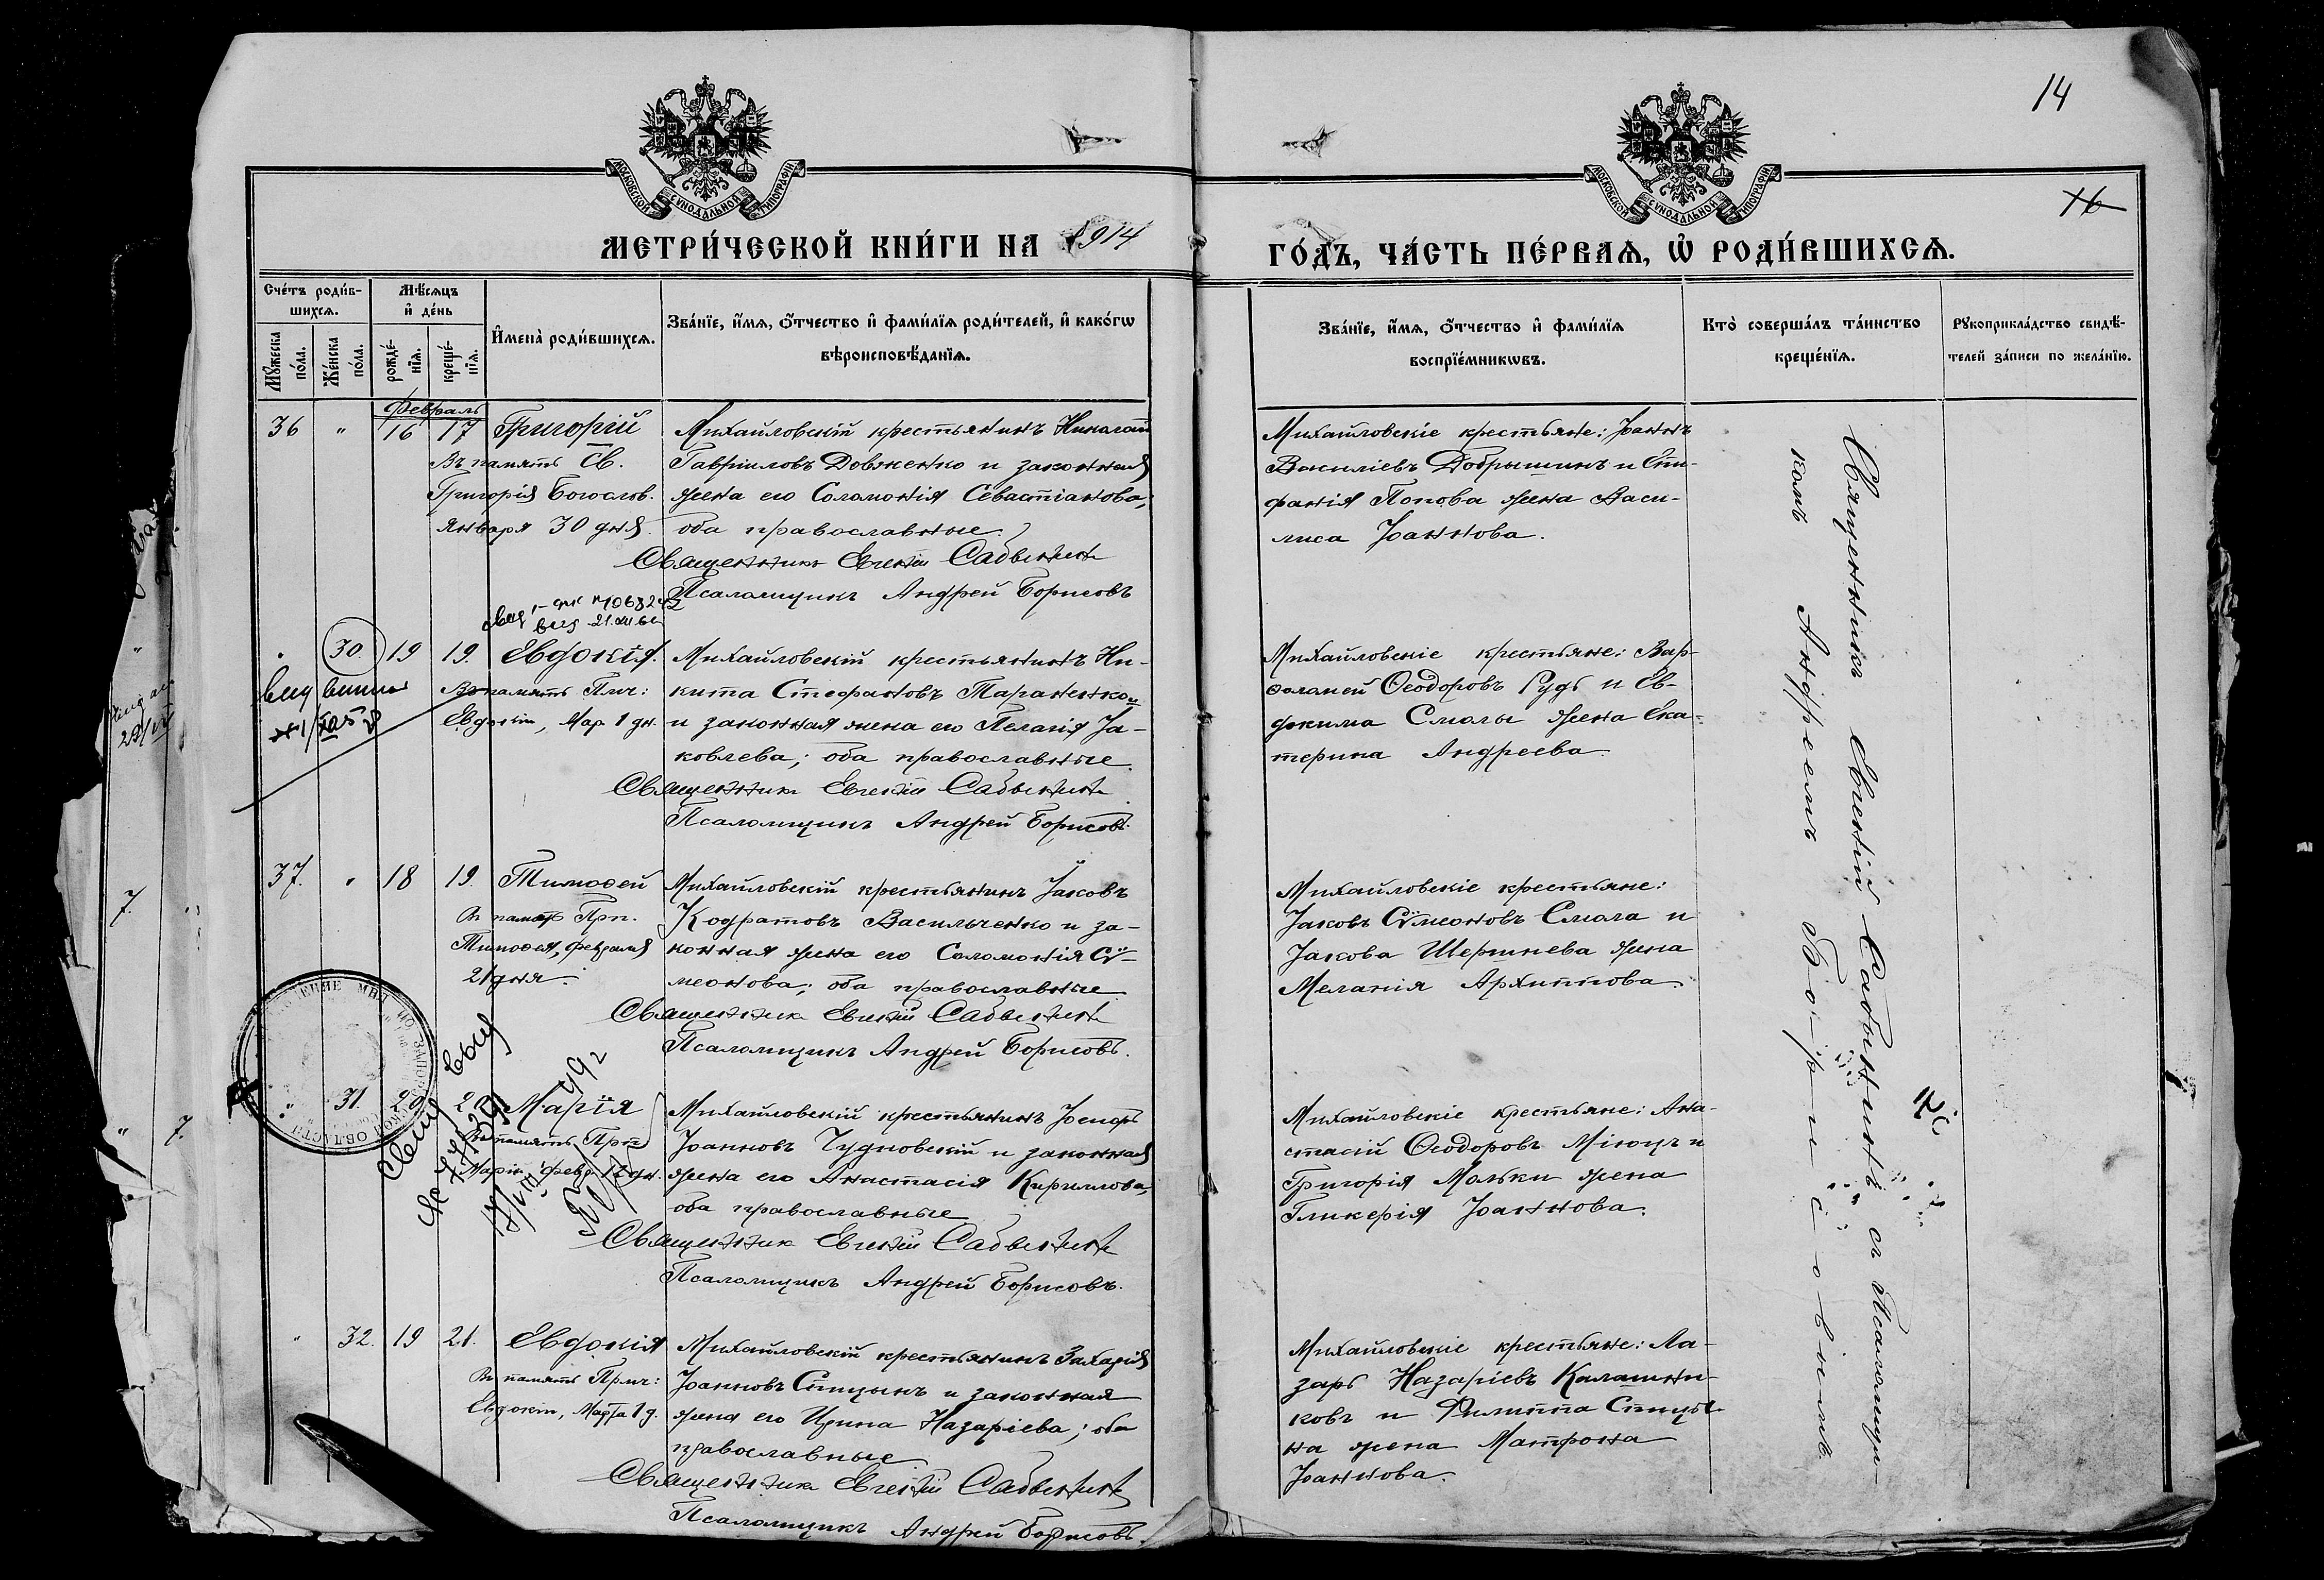 14
16
МОСКОВСКОЙ СѴНОДАЛЬНОЙ ТИПОГРАФІИ
МОСКОВСКОЙ СѴНОДАЛЬНОЙ ТИПОГРАФІИ
МЕТРИ́ЧЕСКОЙ КНИ́ГИ НА 1914
ГО́ДЪ, ЧА́СТЬ ПЕ́РВАѦ, Ѡ҆ РОДИ́ВШИХСѦ.
Сче́тъ роди́в-
шихсѧ.
Мꙋ́жеска
по́ла.
Же́нска
по́ла.
Мѣ́сѧцъ
и҆ де́нь
рожде́-
нїѧ.
креще́-
нїѧ.
И҆мена̀ роди́вшихсѧ.
Зва́нїе, и҆́мѧ, ѻ҆́тчество и҆ фами́лїѧ роди́телей, и҆ како́гѡ
вѣроисповѣ́данїѧ.
Зва́нїе, и҆́мѧ, ѻ҆́тчество и҆ фами́лїѧ
воспрїе́мникѡвъ.
Кто̀ соверша́лъ та́инство
креще́нїѧ.
Рꙋкоприкла́дство свидѣ́-
телей за́писи по жела́нїю.
Февраль
36 " 16 17 Григорій
Въ память Св.
Григорія Богослов.
Января 30 дня.
Михайловскій крестьянинъ Николай
Гавріиловъ Довженко и законная
жена его Соломонія Севастіанова,
оба православные.
Священникъ Евгеній Сабынинъ
Псаломщикъ Андрей Борисовъ
Михайловскіе крестьяне: Іоаннъ
Василіевъ Добрышинъ и Епи-
фанія Попова жена Васи-
лиса Іоаннова.
" 30. 19 19. Евдокія.
Въ память Пмч:
Евдокіи, Мар. 1 дн.
Михайловскій крестьянинъ Ни-
кита Стефановъ Тараненко
и законная жена его Пелагія Іа-
ковлева; оба православные.
Священникъ Евгеній Сабынинъ
Псаломщикъ Андрей Борисовъ.
Михайловскіе крестьяне: Вар-
ѳоломей Ѳеодоровъ Рудь и Ев-
фкима Смолы жена Ека-
терина Андреева.
37. " 18 19. Тимоѳей
Въ память Прп.
Тимоѳея, февраля
21 дня.
Михайловскій крестьянинъ Іаковъ
Кодратовъ Васильченко и за-
конная жена его Соломонія Сѵ-
меонова; оба православные
Священникъ Евгеній Сабынинъ
Псаломщикъ Андрей Борисовъ.
Михайловскіе крестьяне:
Іаковъ Сѵмеоновъ Смола и
Іакова Шершнева жена
Меланія Архиппова.
" 31. 20 20 Марія
Въ память Прп
Маріи февр. 12 дн.
Михайловскій крестьянинъ Іосифъ
Іоанновъ Чудновскій и законная
жена его Анастасія Кириллова,
оба православные
Священникъ Евгеній Сабынинъ
Псаломщикъ Андрей Борисовъ.
Михайловскіе крестьяне: Ана-
стасій Ѳеодоровъ Міюцъ и
Григорія Мольки жена
Гликерія Іоаннова.
" 32. 19 21. Евдокія
Въ память Прмч:
Евдокіи, Марта 1 д.
Михайловскій крестьянинъ Захарія
Іоанновъ Спицынъ и законная
жена его Ирина Назаріева; оба
православные
Священникъ Евгеній Сабынинъ
Псаломщикъ Андрей Борисовъ.
Михайловскіе крестьяне: Ла-
зарь Назаріевъ Калашни-
ковъ и Филиппа Спицы-
на жена Матрона
Іоаннова.
Священникъ Евгеній Сабынинъ съ Псаломщи-
комъ Андреемъ Борисовымъ.